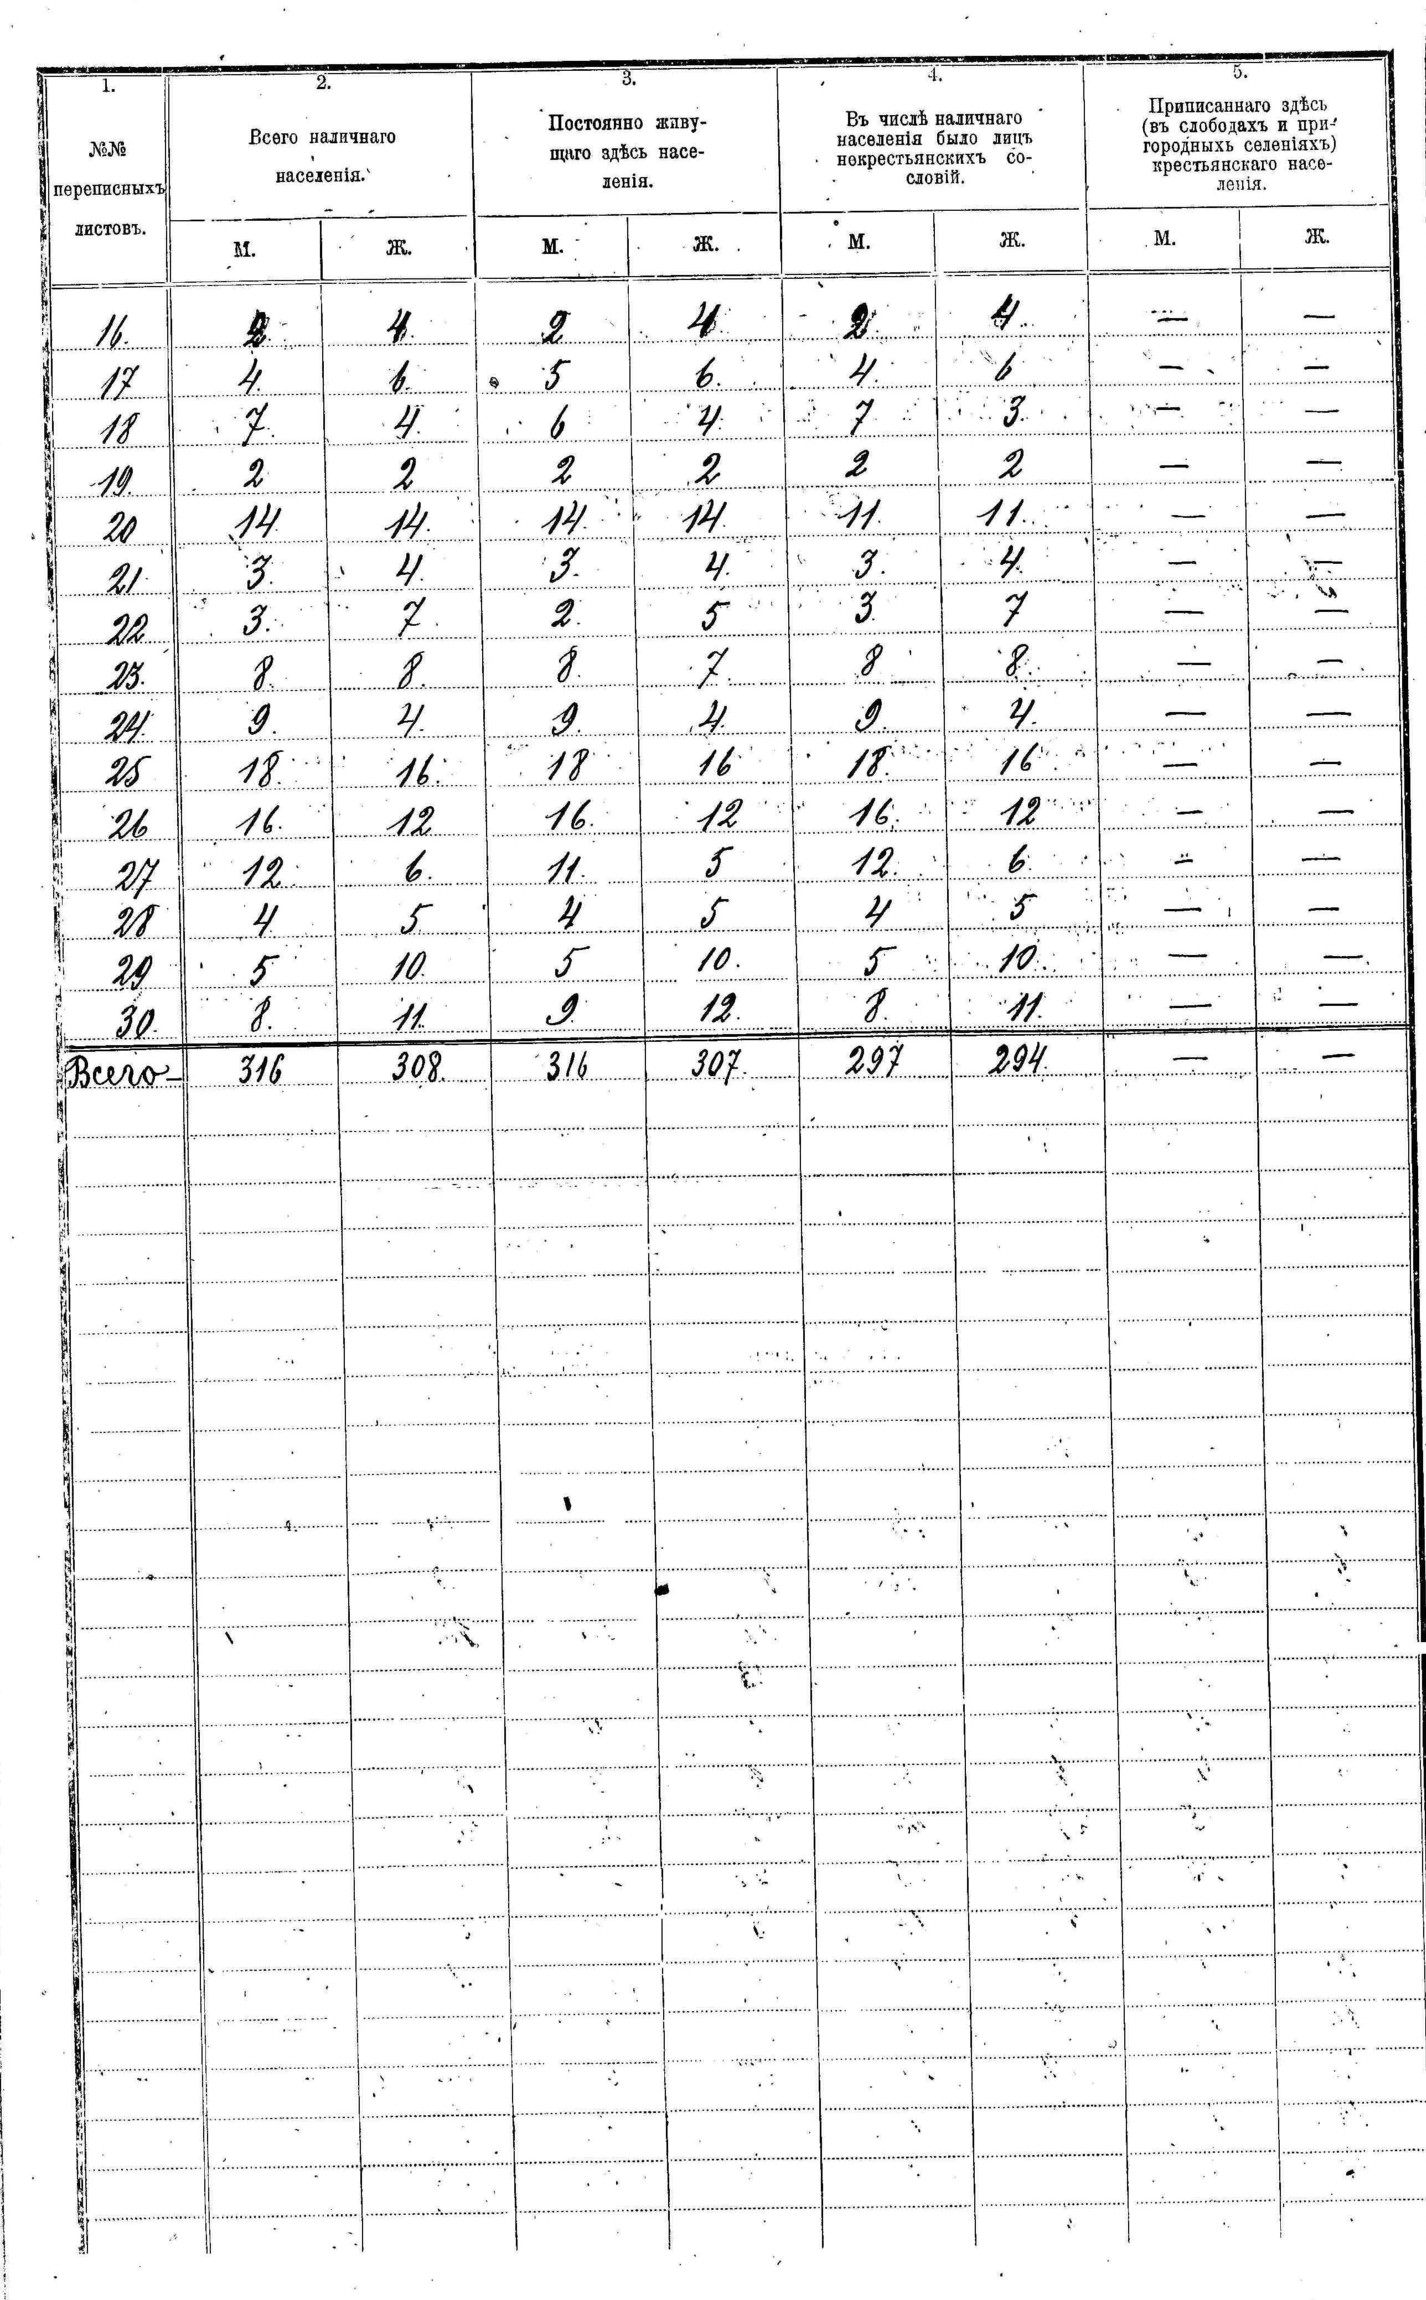 1. 2. 3. 4. 5.
№№
переписныхъ
листовъ.
Всего наличнаго
населенія.
Постоянно живу-
щаго здѣсь насе-
ленія.
Въ числѣ наличнаго
населенія было лицъ
некрестьянскихъ со-
словій.
Приписаннаго здѣсь
(въ слободахъ и при-
городныхъ селеніяхъ)
крестьянскаго насе-
ленія.
М. Ж. М. Ж. М. Ж. М. Ж.
16. 2. 4. 2 4 2. 4. — —
17 4. 6. 5 6. 4. 6 — —
18 7. 4. 6 4. 7 3. — —
19. 2 2 2 2 2 2 — —
20 14. 14. 14. 14. 11. 11. — —
21 3. 4. 3. 4. 3. 4. — —
22 3. 7. 2. 5 3. 7 — —
23. 8. 8. 8. 7. 8 8. — —
24. 9. 4. 9. 4. 9. 4. — —
25 18. 16. 18 16 18. 16 — —
26 16. 12 16. 12 16. 12 — —
27 12. 6. 11. 5 12. 6. — —
28 4 5 4 5 4 5 — —
29 5 10. 5 10. 5 10. — —
30. 8. 11. 9. 12. 8. 11. — —
Всего — 316 308. 316 307. 297 294. — —